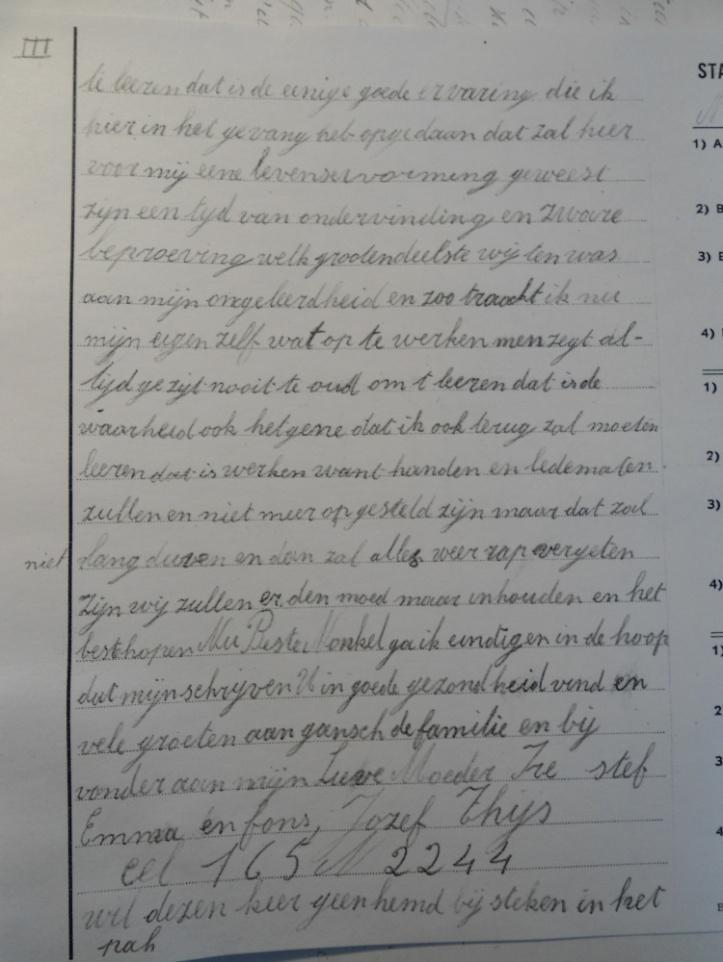 III
te leeren dat is de eenige goede ervaring die ik
hier in het gevang heb opgedaan dat zal hier
voor mij eene levenservorming geweest
zijn een tijd van ondervinding en zware
beproeving welk grootendeelste wijten was
aan mijn ongeleerdheid en zoo tracht ik nu
mijn eigen zelf wat op te werken men zegt al-
tijd ge zijt nooit te oud om t leeren dat is de
waarheid ook hetgene dat ik ook terug zal moeten
leeren dat is werken want handen en ledematen
zullen en niet meer op gesteld zijn maar dat zal
niet lang duren en dan zal alles weer rap vergeten
zijn wij zullen er den moed maar inhouden en het
beste hopen Nu Beste Nonkel ga ik eindigen in de hoop
dat mijn schrijven U in goede gezondheid vind en
vele groeten aan gansch de familie en bij
zonder aan mijn Lieve Moeder Ire stef
Emma en fons, Jozef Thijs
cel 165 N 2244
wil dezen keer geen hemd bij steken in het
pak
STA
1) A
2) B
3) E
4)
1)
2)
3)
4)
1)
2
3
4